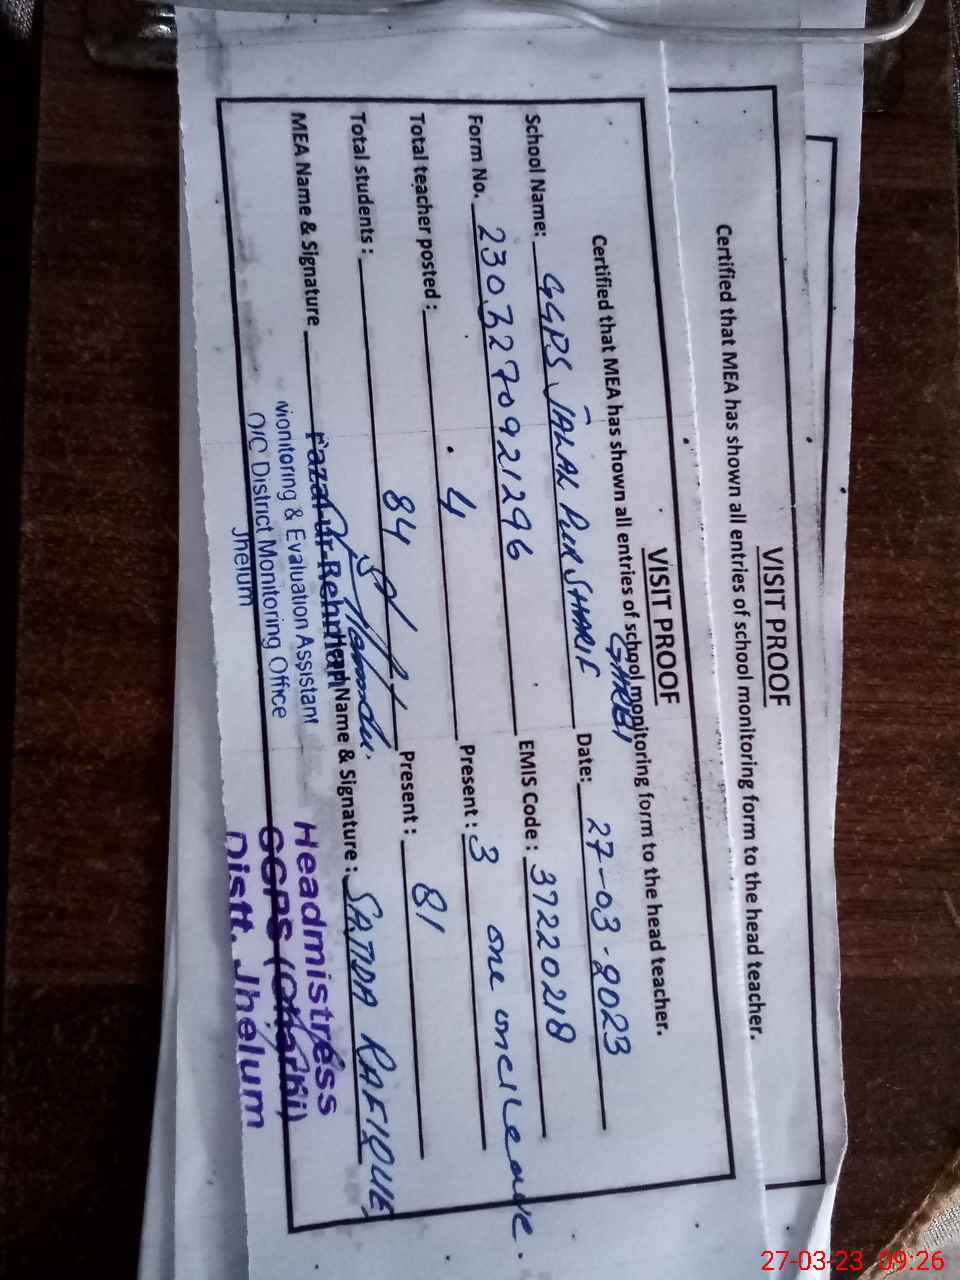 VISIT PROOF
Certified that MEA has shown all entries of school monitoring form to the head teacher.
VISIT PROOF
Certified that MEA has shown all entries of school monitoring form to the head teacher.
GHARBI
School Name: GGPS JALAL PUR SHARIF Date: 27-03-2023
Form No. 2303270921296 EMIS Code: 37220218
Total teacher posted: 4 Present: 3 one on c/Leave.
Total students: 84 Present: 81
MEA Name & Signature Fazal-ur-Rehman Head Name & Signature: SAJIDA RAFIQUE
Monitoring & Evaluation Assistant
O/C District Monitoring Office
Jhelum
Headmistress
GGPS (Gharbi)
Distt. Jhelum
27-03-23 09:26